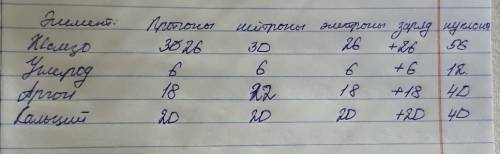 Элемент: Протоны нейтроны электроны заряд нуклоны
Железо 30 26 30 26 +26 56
Углерод 6 6 6 +6 12
Аргон 18 22 18 +18 40
Кальций 20 20 20 +20 40